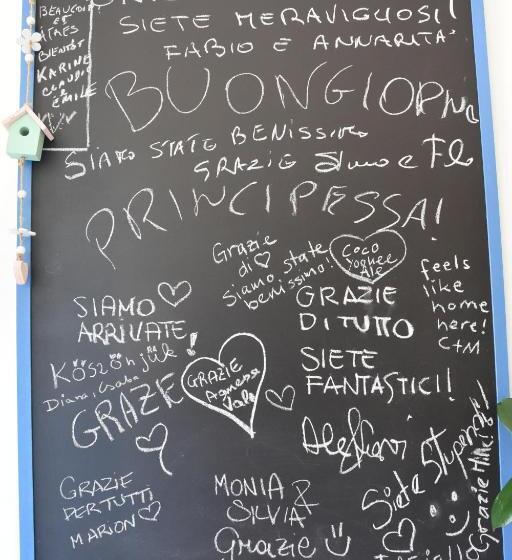 BEAUCOUP
ET
BIENTÔT
KARINE
CLAUDI
&
EMILE
SIETE MERAVIGLIOSI!
FABIO E ANNARITA'
BUONGIORNO
SIAMO STATE BENISSIMO
GRAZIE
e
PRINCIPESSA!
Grazie
di
siamo state
benissimo!
COCO
Yoghee
Ale
feels
like
home
here!
C+M
SIAMO
ARRIVATE!
GRAZIE
DI TUTTO
SIETE
FANTASTICI!!
Köszönjük
Diana, Csaba
GRAZIE
GRAZIE
Agnese
Vale
GRAZE
Siete Stupendi!
Grazie Mille!
GRAZIE
PER TUTTI
MARION
MONIA &
SILVIA
Grazie